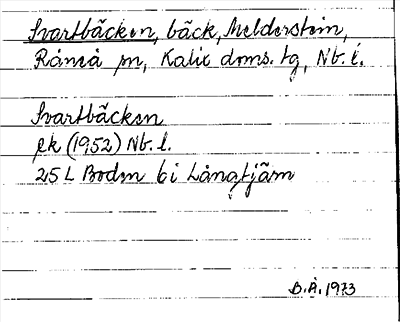 Svartbäcken, bäck, Melderstein,
Råneå sn, Kalix doms. tg, Nb. l.
Svartbäcken
ek (1952) Nb. l.
25 L Boden bi Långtjärn
B.Å. 1973